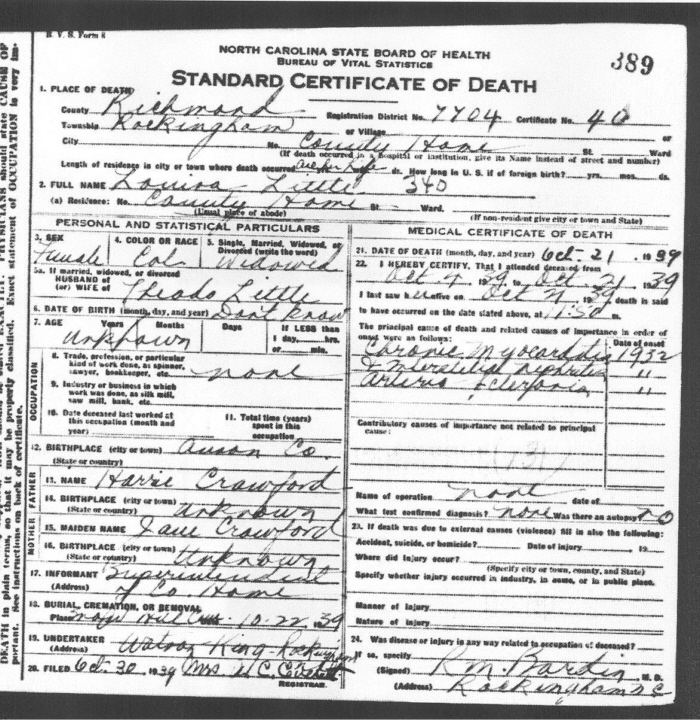 R. V. S. Form 8
389
NORTH CAROLINA STATE BOARD OF HEALTH
BUREAU OF VITAL STATISTICS
STANDARD CERTIFICATE OF DEATH
1. PLACE OF DEATH
County Richmond Registration District No. 7704 Certificate No. 40
Township Rockingham or Village or
City No. County Home St. Ward
(If death occurred in a hospital or institution, give its Name instead of street and number)
Length of residence in city or town where death occurred ds. How long in U. S. if of foreign birth? yrs. mos. ds.
2. FULL NAME Louisa Little 340
(a) Residence: No. County Home St. Ward.
(Usual place of abode) (If non-resident give city or town and State)
PERSONAL AND STATISTICAL PARTICULARS
3. SEX 4. COLOR OR RACE 5. Single, Married, Widowed, or Divorced (write the word)
Female Col Widowed
5a. If married, widowed, or divorced
HUSBAND of
(or) WIFE of Theado Little
6. DATE OF BIRTH (month, day, and year) Dont know
7. AGE Years Months Days If LESS than
1 day, hrs.
or min.
unknown
OCCUPATION
8. Trade, profession, or particular
kind of work done, as spinner,
sawyer, bookkeeper, etc. none
9. Industry or business in which
work was done, as silk mill,
saw mill, bank, etc.
10. Date deceased last worked at
this occupation (month and
year)
11. Total time (years)
spent in this
occupation
12. BIRTHPLACE (city or town) Anson Co.
(State or country)
FATHER
13. NAME Harrie Crawford
14. BIRTHPLACE (city or town)
(State or country) unknown
MOTHER
15. MAIDEN NAME Jane Crawford
16. BIRTHPLACE (city or town)
(State or country) Unknown
17. INFORMANT Superintendent
(Address) of Co Home
18. BURIAL, CREMATION, OR REMOVAL
Place Hill 10-22 1939
19. UNDERTAKER Watson King Rockingham
(Address)
20. FILED Oct. 30 1939 Mrs. W. C.
REGISTRAR.
MEDICAL CERTIFICATE OF DEATH
21. DATE OF DEATH (month, day, and year) Oct. 21 1939
22. I HEREBY CERTIFY, That I attended deceased from
Oct 4 1939 to Oct. 21 1939
I last saw her alive on Oct 4 1939 death is said
to have occurred on the date stated above, at 11:30 m.
The principal cause of death and related causes of importance in order of
onset were as follows:
Chronic Myocarditis 1932
& Interstitial Nephritis "
Arterio "
Contributory causes of importance not related to principal
cause:
131
Name of operation none date of
What test confirmed diagnosis? none Was there an autopsy? no
23. If death was due to external causes (violence) fill in also the following:
Accident, suicide, or homicide? Date of injury 19
Where did injury occur?
(Specify city or town, county, and State)
Specify whether injury occurred in industry, in home, or in public place.
Manner of injury
Nature of injury
24. Was disease or injury in any way related to occupation of deceased?
If so, specify
(Signed) R. M. Bardin M. D.
(Address) Rockingham N C